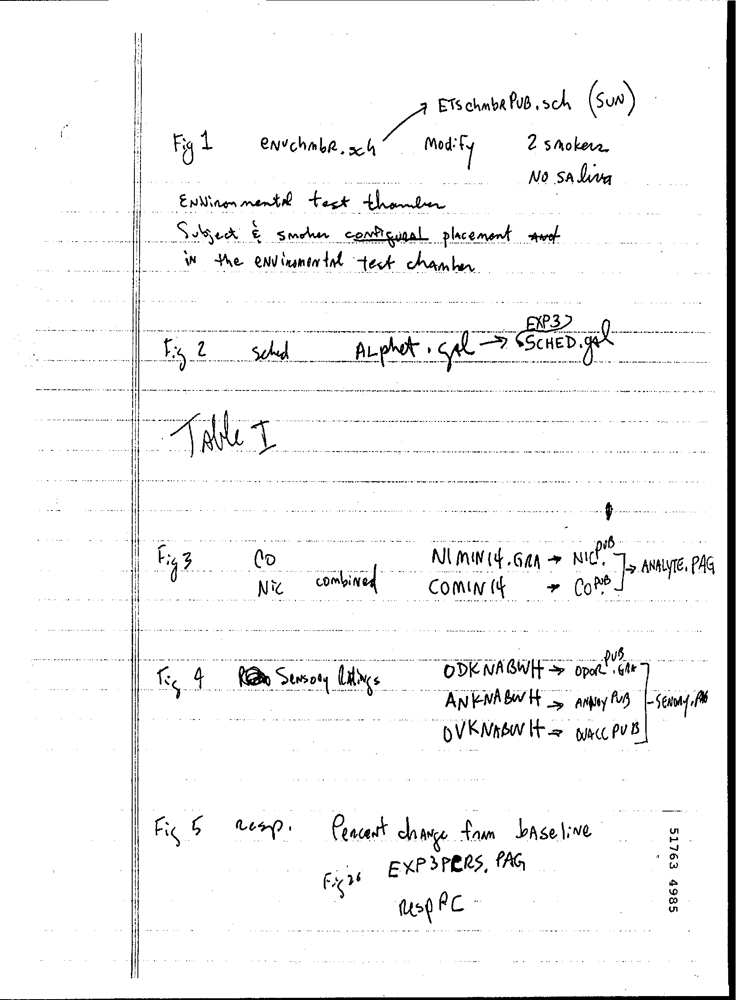 → ETSchmbRPUB.sch (SUN)
Fig 1 envchmbR.sch Modify 2 smokers
NO SAliva
Environmental test chamber
Subject & smoker configural placement and
in the enviromental test chamber
EXP3
Fig 2 sched ALphet.gal → SCHED.gal
Table I
Fig 3 CO NIMIN14.GRA → NIC.PUB → ANALYTE.PAG
Nic combined COMIN14 → CO PUB
Fig 4 Sensory Ratings ODKNABWH → ODOR PUB.GRA
ANKNABWH → ANNOY PUB
OVKNABWH → OVACC PUB
Fig 5 resp. Percent change from baseline
Fig 26 EXP3PERS.PAG
respPC
51763 4985